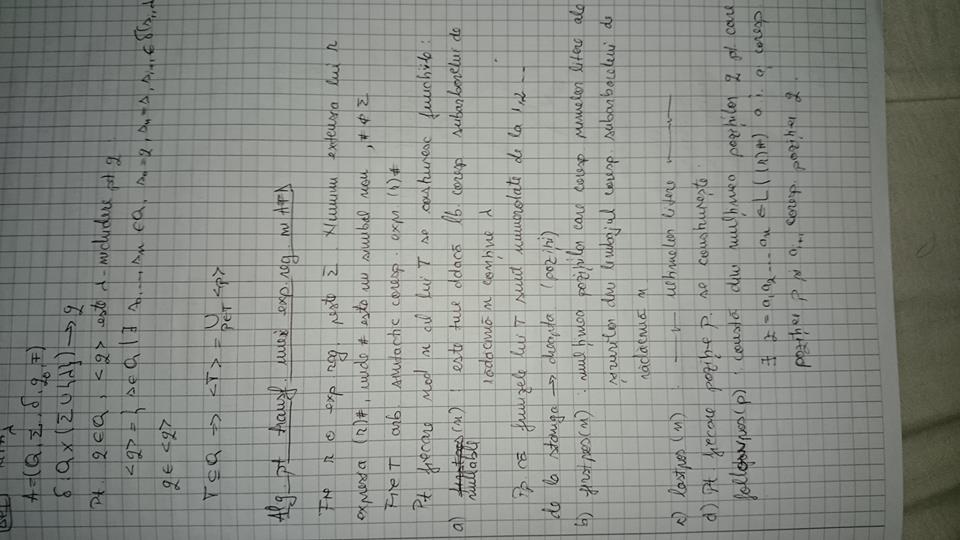 Def
A=(Q, Σ, δ, q₀, F)
δ: Q×(Σ∪{λ}) → 2
Pt. q∈Q, <q> este λ-închidere pt q
<q> = { s∈Q | ∃ s₀, ..., sₙ ∈Q, s₀=q, sₙ=s, sᵢ₊₁ ∈ δ(sᵢ, λ
q ∈ <q>
T⊆Q ⇒ <T> = ∪ <p>
p∈T
Alg. pt transf. unei exp. reg. în AFD
Fie r o exp reg. peste Σ. Numim extensia lui r
expresia (r)#, unde # este un simbol nou, # ∉ Σ
Fie T arb. sintactic coresp. expr. (r)#
Pt fiecare nod n al lui T se construiesc funcțiile:
a) nullable(n) : este true ddacă lb. coresp subarborelui de
rădăcină n conține λ
Pp că frunzele lui T sunt numerotate de la 1,2 ...
de la stânga → dreapta (poziții)
b) firstpos(n) : mulțimea pozițiilor care coresp primelor litere ale
șirurilor din limbajul coresp. subarborelui de
rădăcină n
c) lastpos(n) : —〃— ultimelor litere —〃—
d) Pt fiecare poziție p. se construiește
followpos(p) : constă din mulțimea pozițiilor q pt care
∃ z = a₁a₂ ... aₙ ∈ L((r)#) a.î. aᵢ coresp
poziției p și aᵢ₊₁ coresp poziției q.